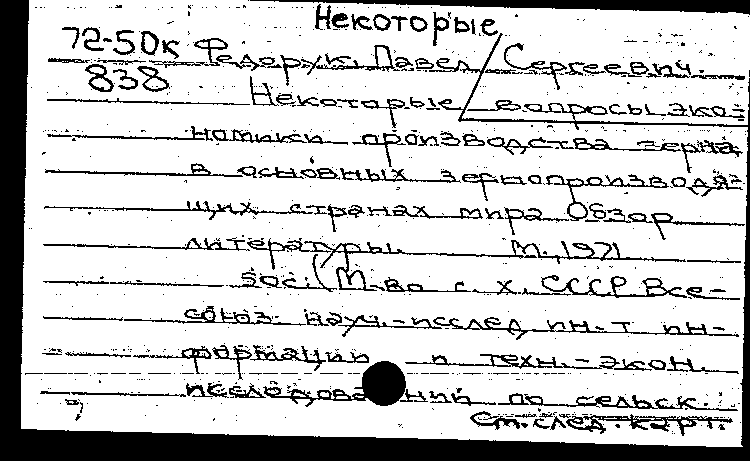 Некоторые
72-50к Федорук, Павел Сергеевич.
838 Некоторые вопросы эко=
номики производства зерна
в основных зернопроизводя=
щих странах мира Обзор
литературы. М., 1971
50с. (М-во с. х. СССР Все-
союз. науч.-исслед ин-т ин-
формации и техн.-экон.
исследований по сельск.
См. след. карт.